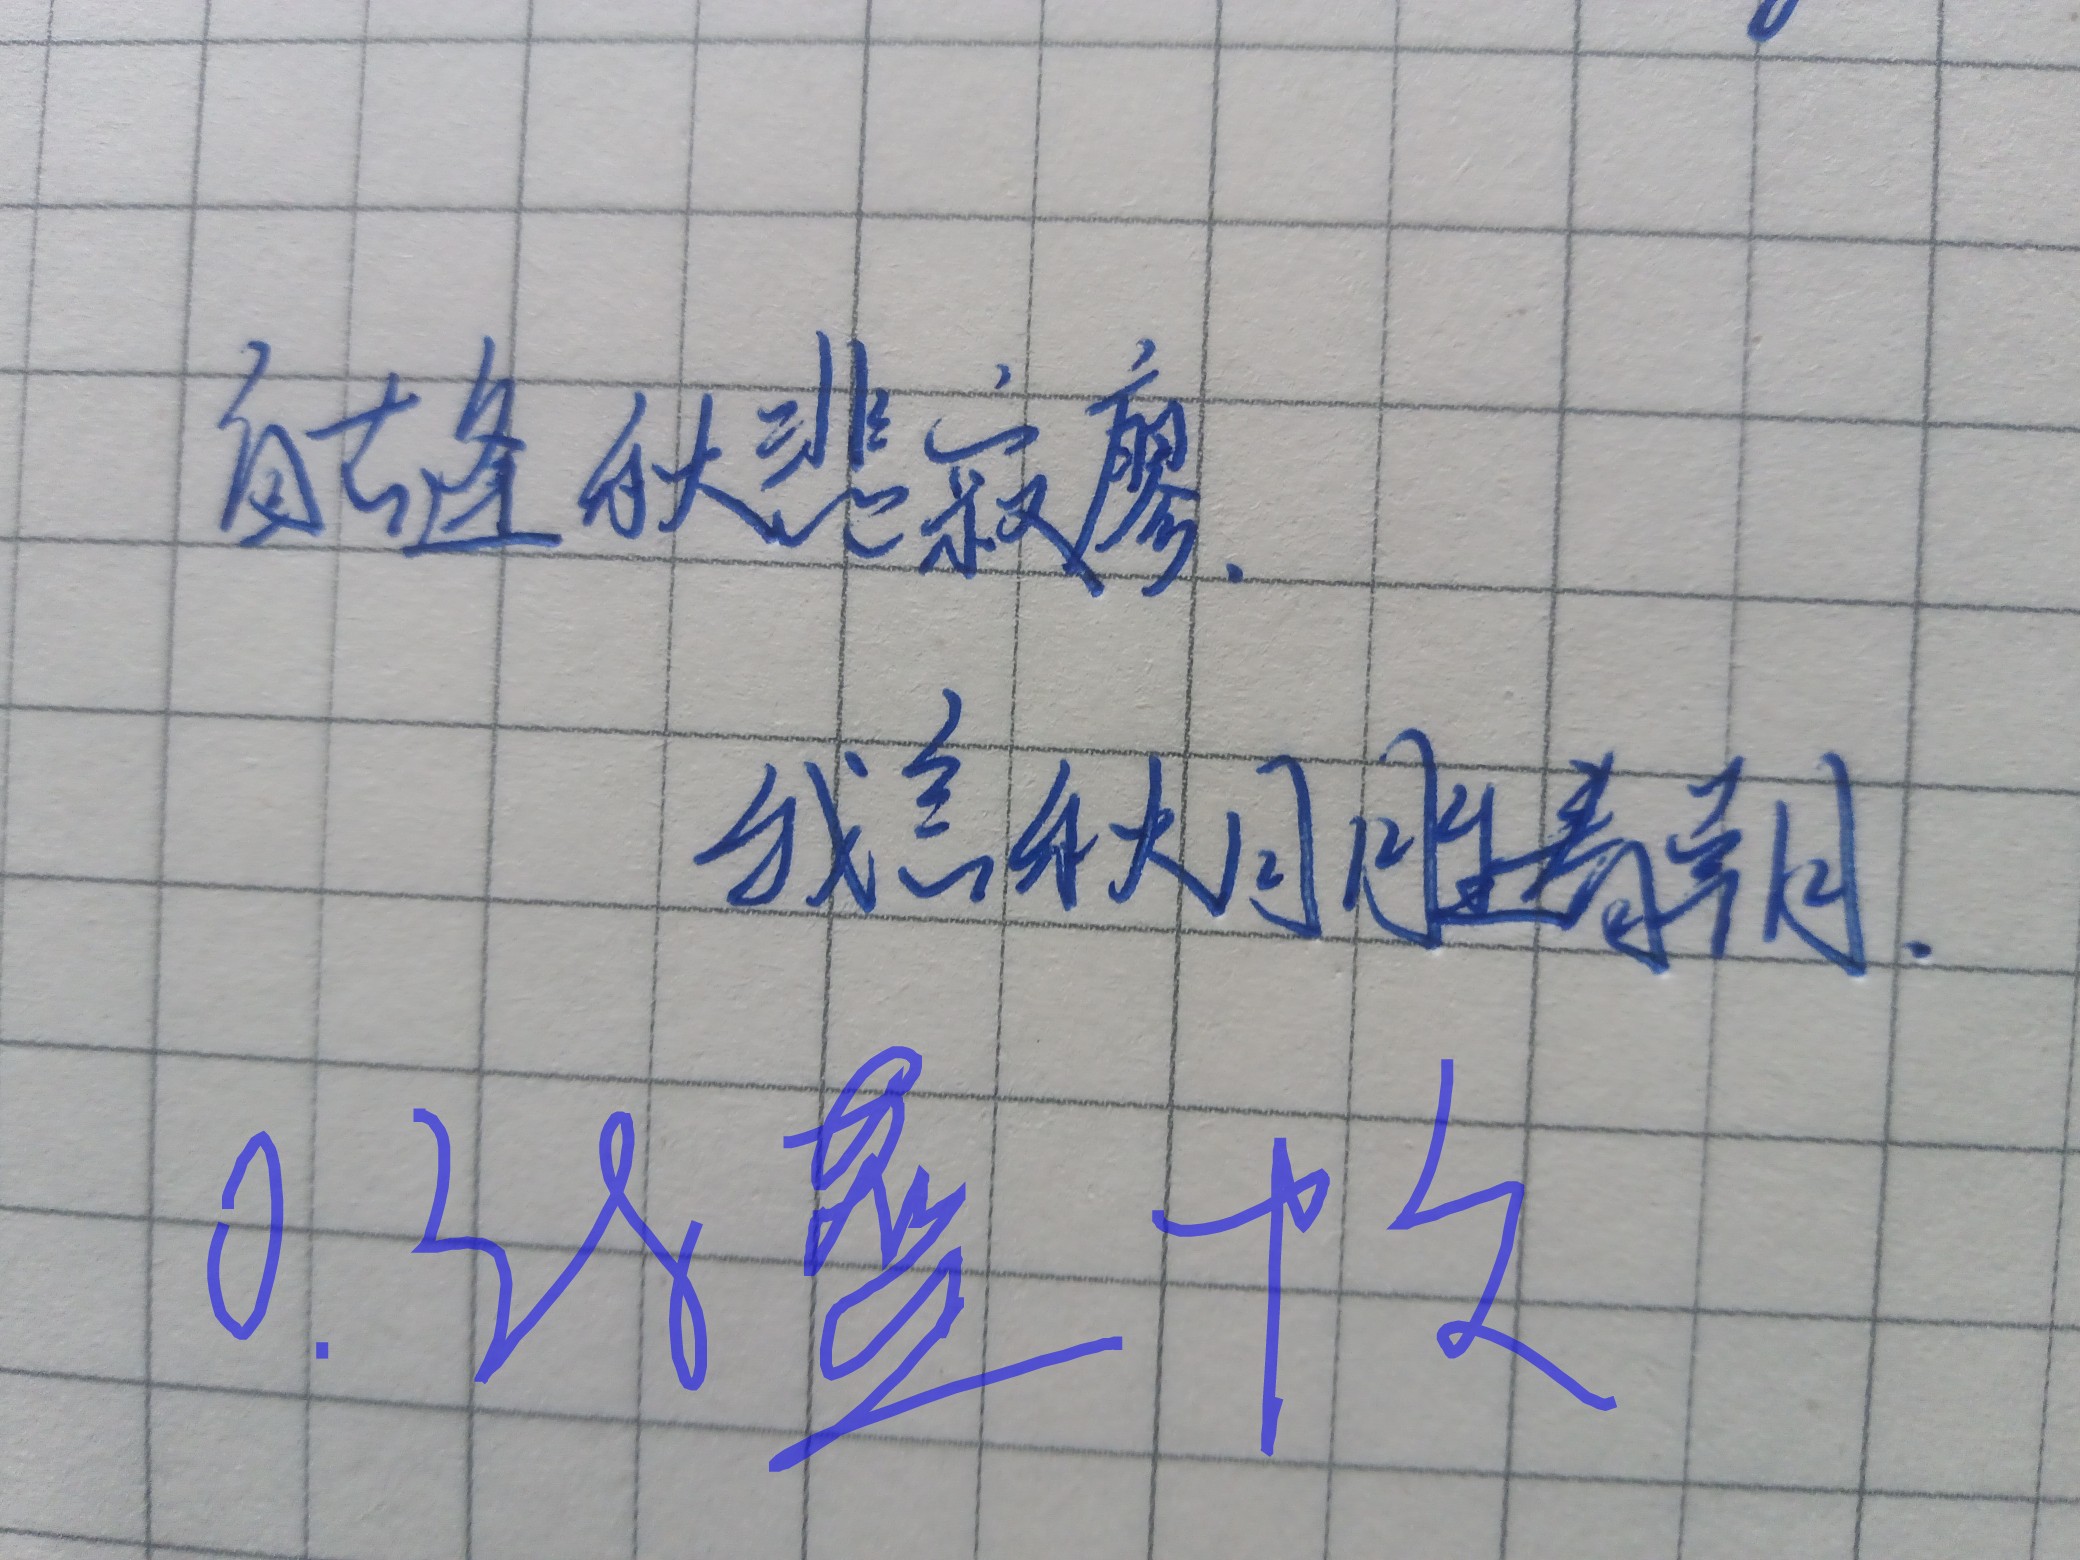 自古逢秋悲寂寥.
我言秋日胜春朝.
0.38